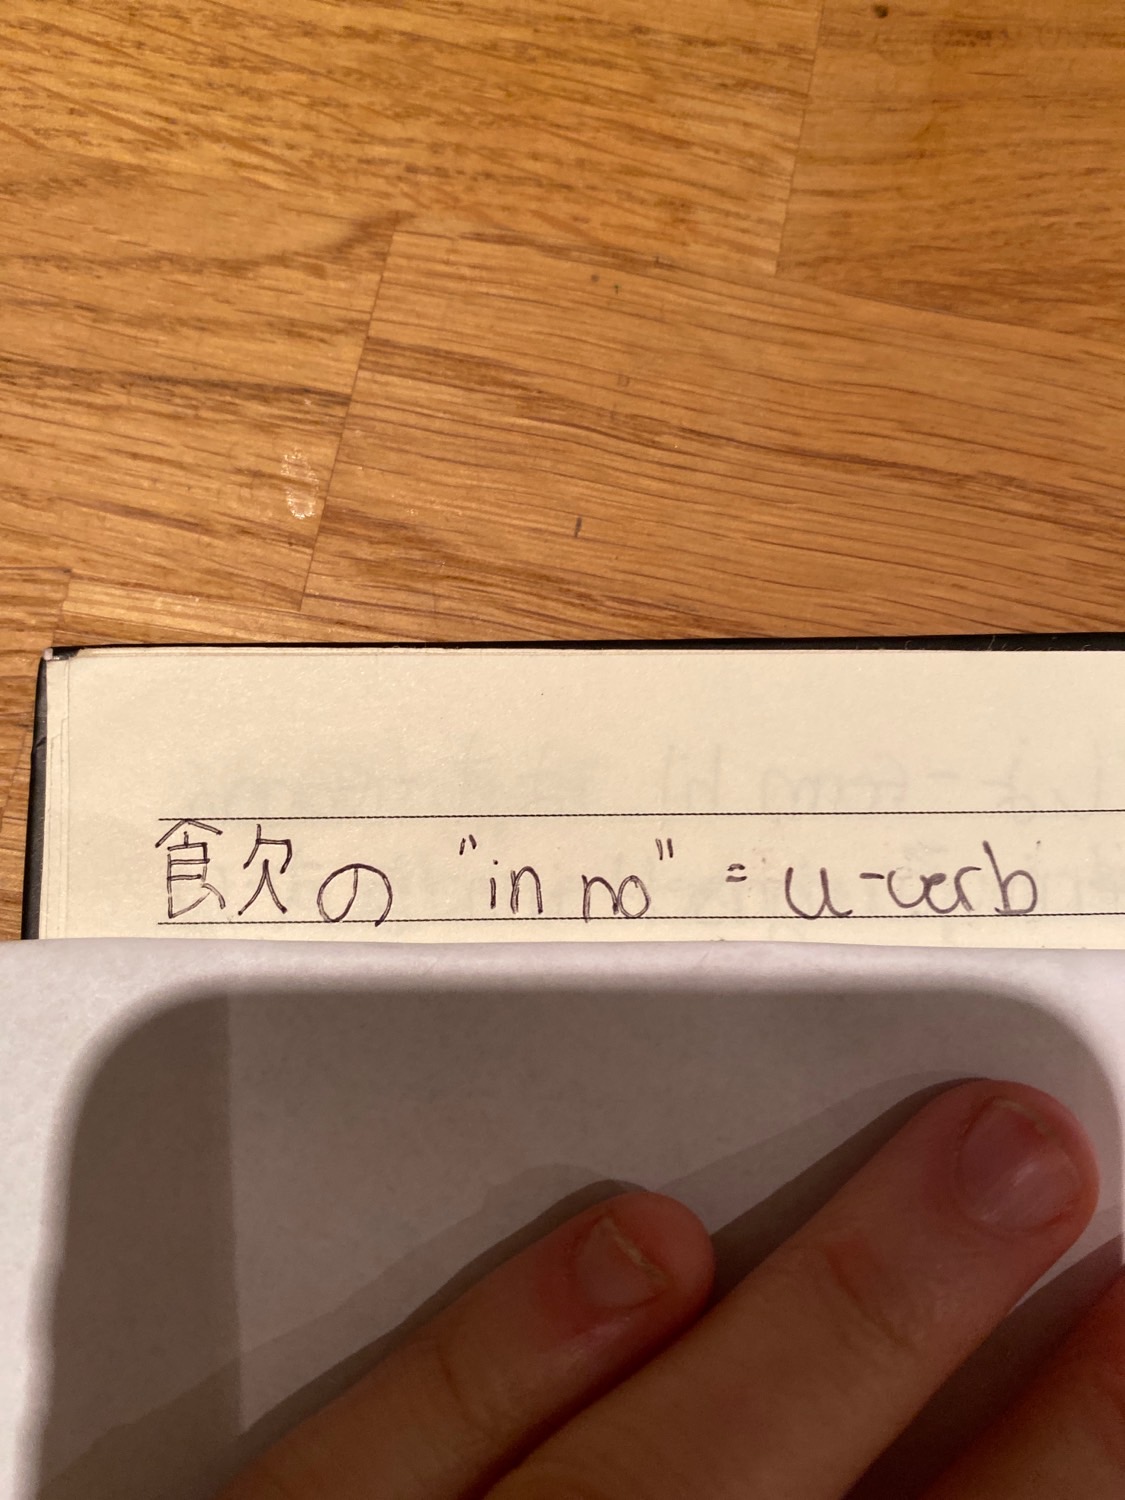 飲の "in no" = u-verb